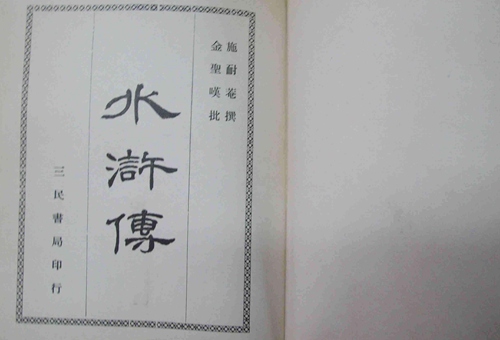 施耐菴撰
金聖嘆批
水滸傳
三民書局印行